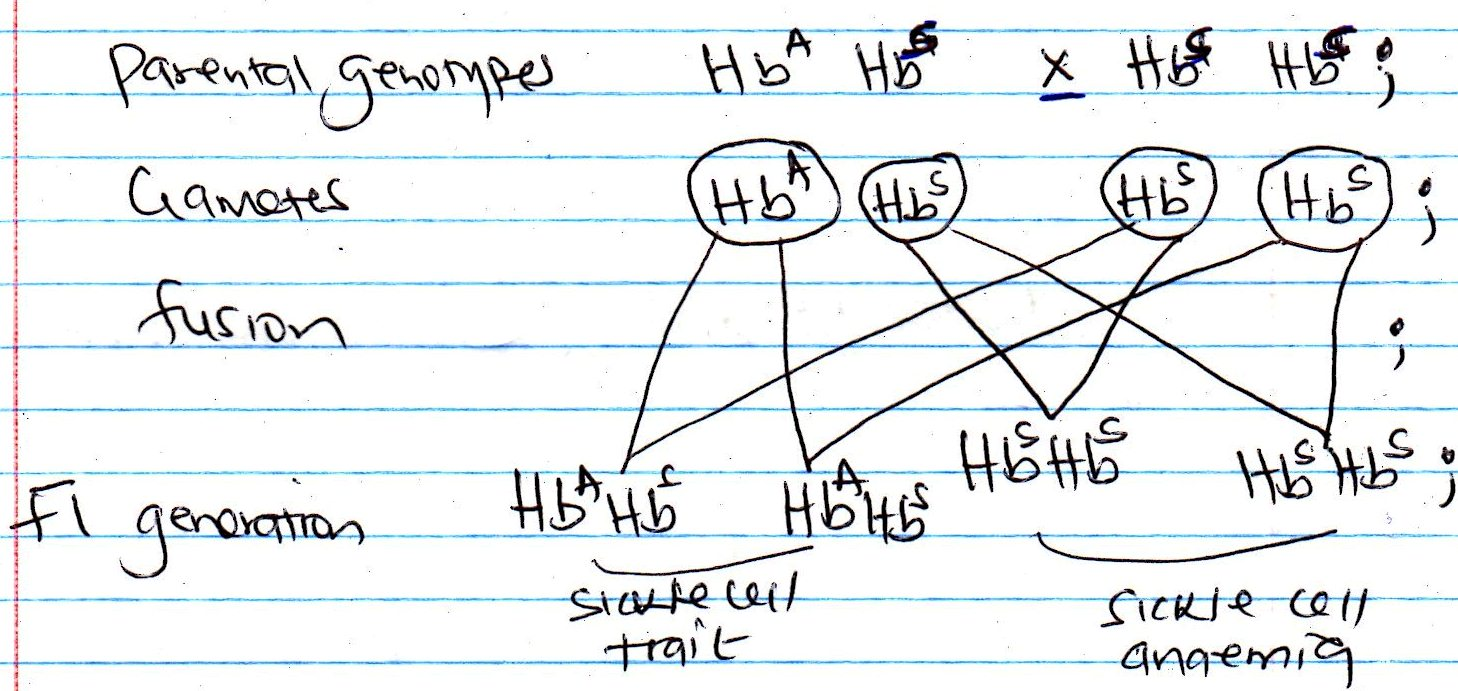 Parental genotypes Hb^A Hb^S x Hb^S Hb^S ;
Gametes Hb^A Hb^S Hb^S Hb^S ;
fusion ;
F1 generation Hb^A Hb^S Hb^A Hb^S Hb^S Hb^S Hb^S Hb^S ;
sickle cell trait
sickle cell anaemia